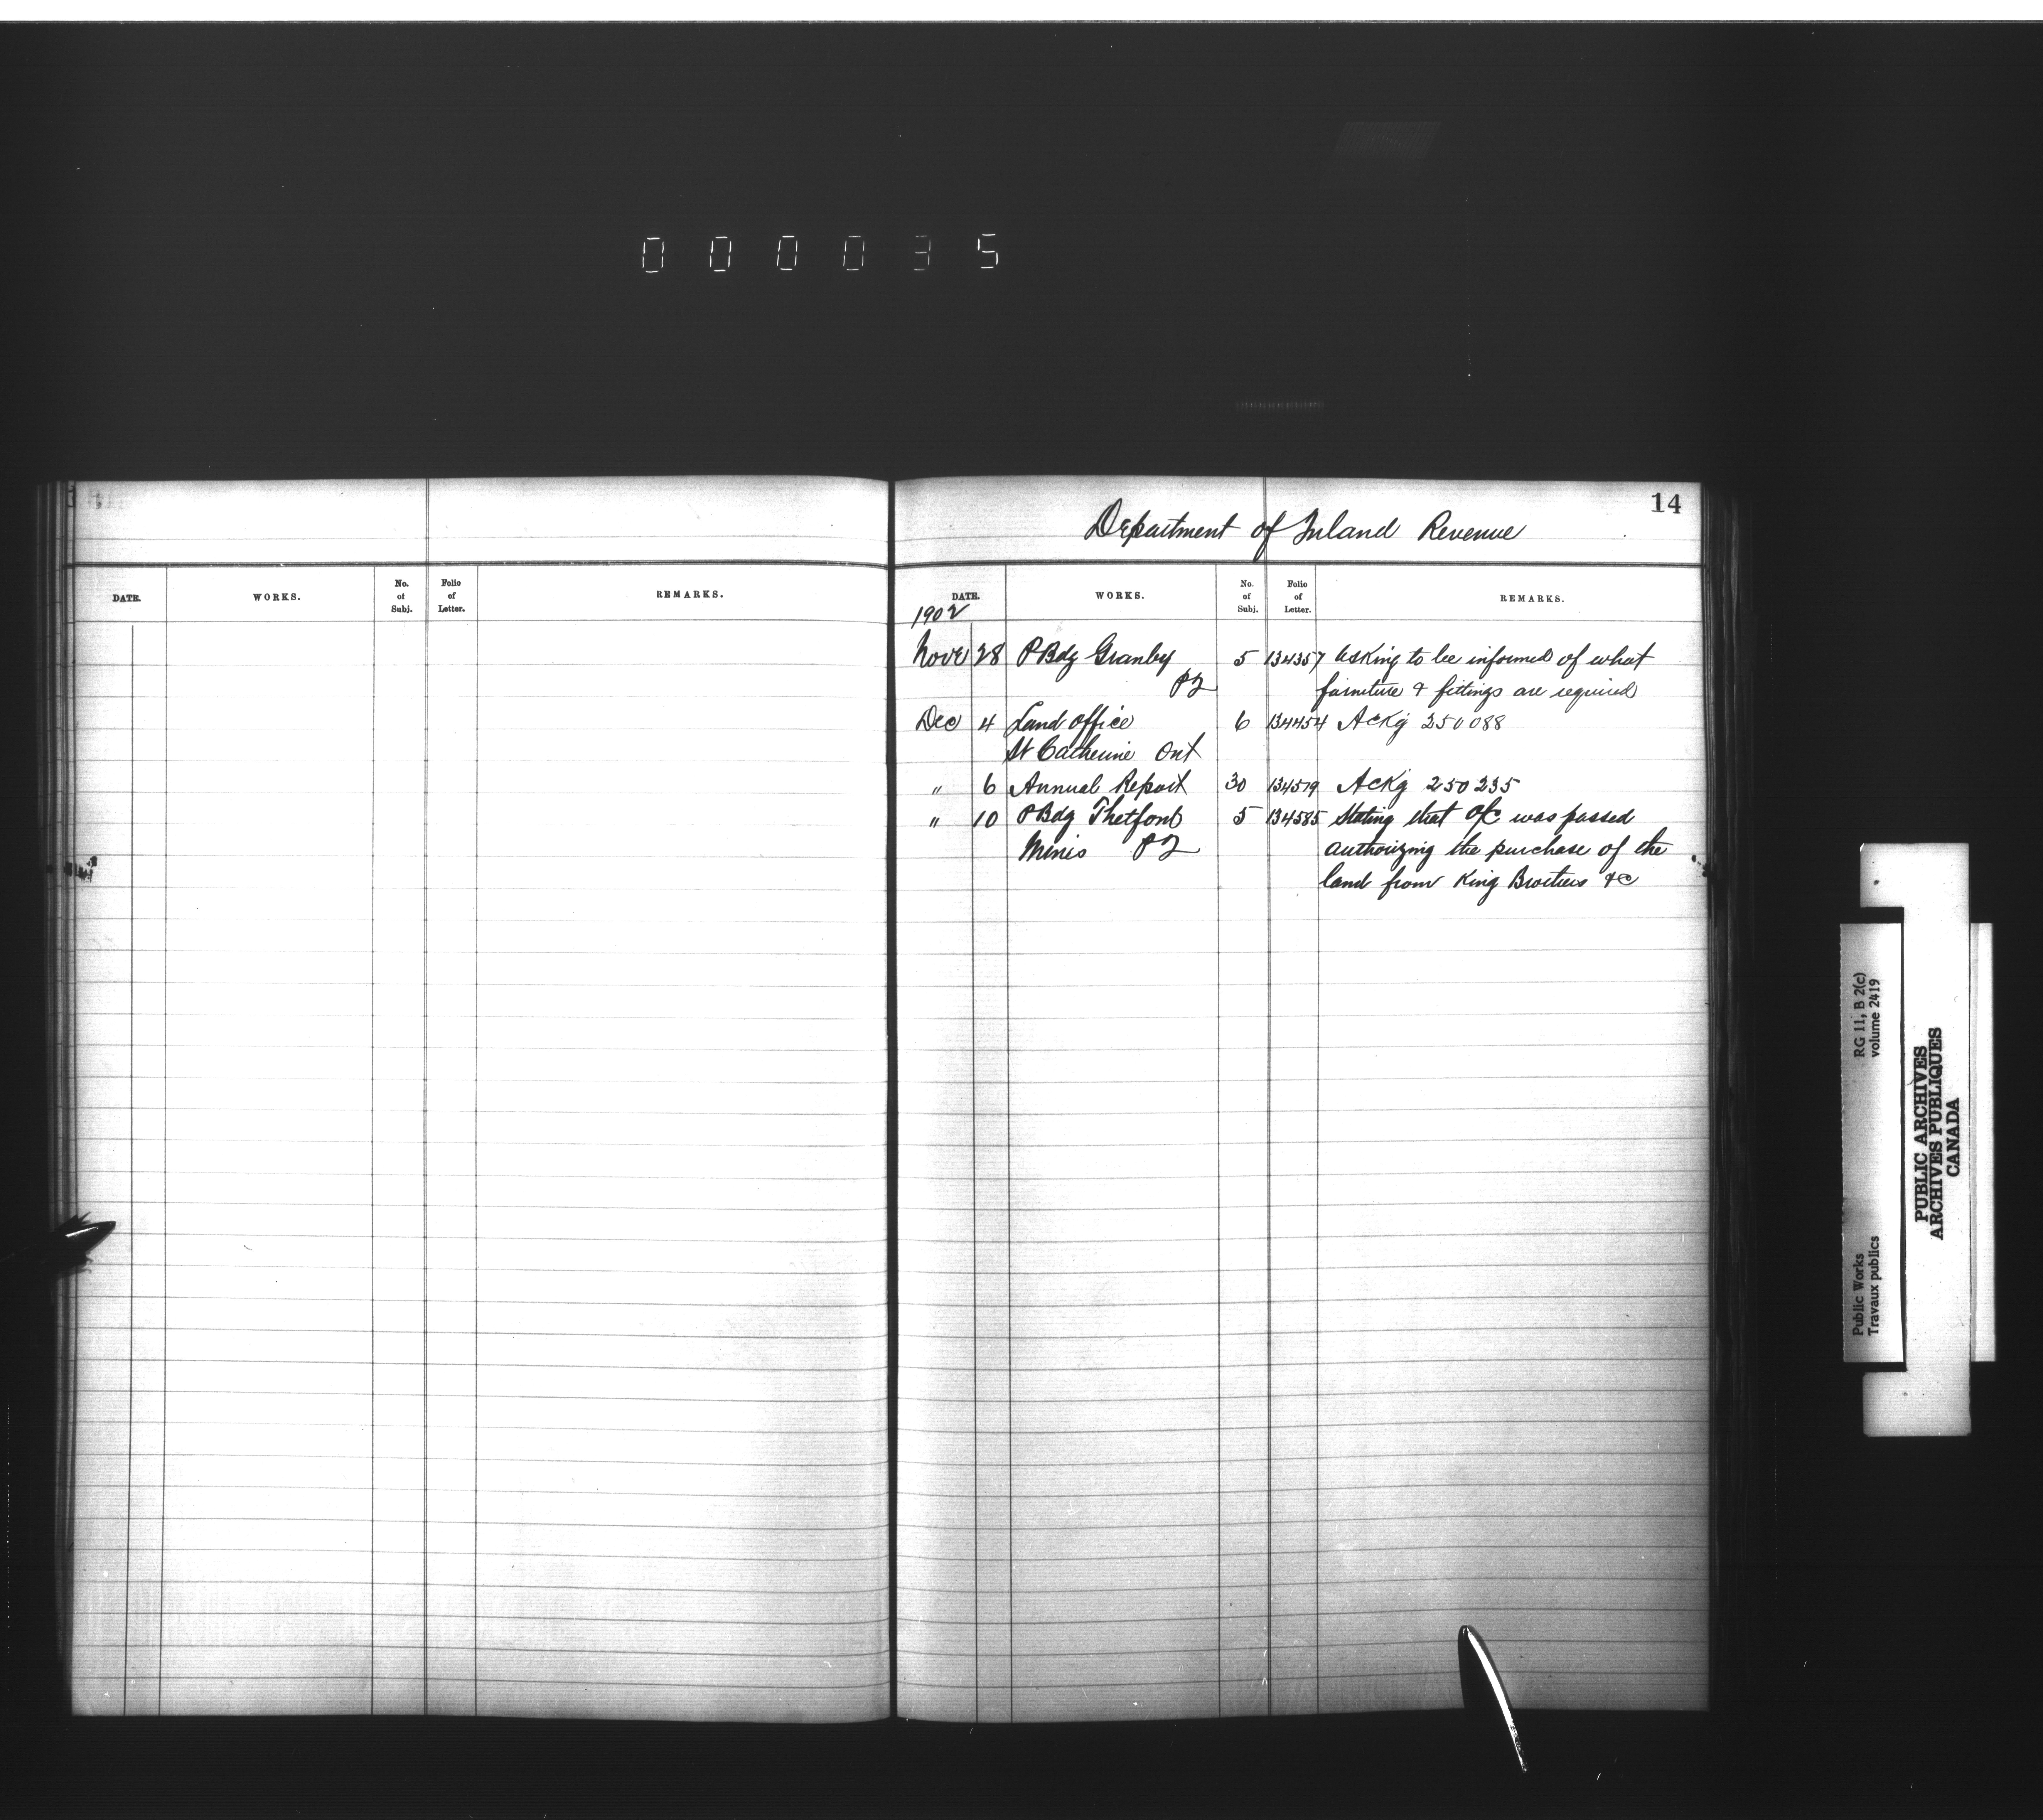 000035
14
Department of Inland Revenue
DATE. WORKS. No. of Subj. Folio of Letter. REMARKS.
DATE. WORKS. No. of Subj. Folio of Letter. REMARKS.
1902
Nove 28 P Bdg Granby 5 134357 Asking to be informed of what
PQ furniture & fittings are required
Dec 4 Land office 6 134454 Ackg 250088
St Catherine Ont
" 6 Annual Report 30 134519 Ackg 250235
" 10 P Bdg Thetford 5 134585 Stating that O/C was passed
Mines PQ authorizing the purchase of the
land from King Brothers &c
RG 11, B 2(c)
volume 2419
Public Works
Travaux publics
PUBLIC ARCHIVES
ARCHIVES PUBLIQUES
CANADA